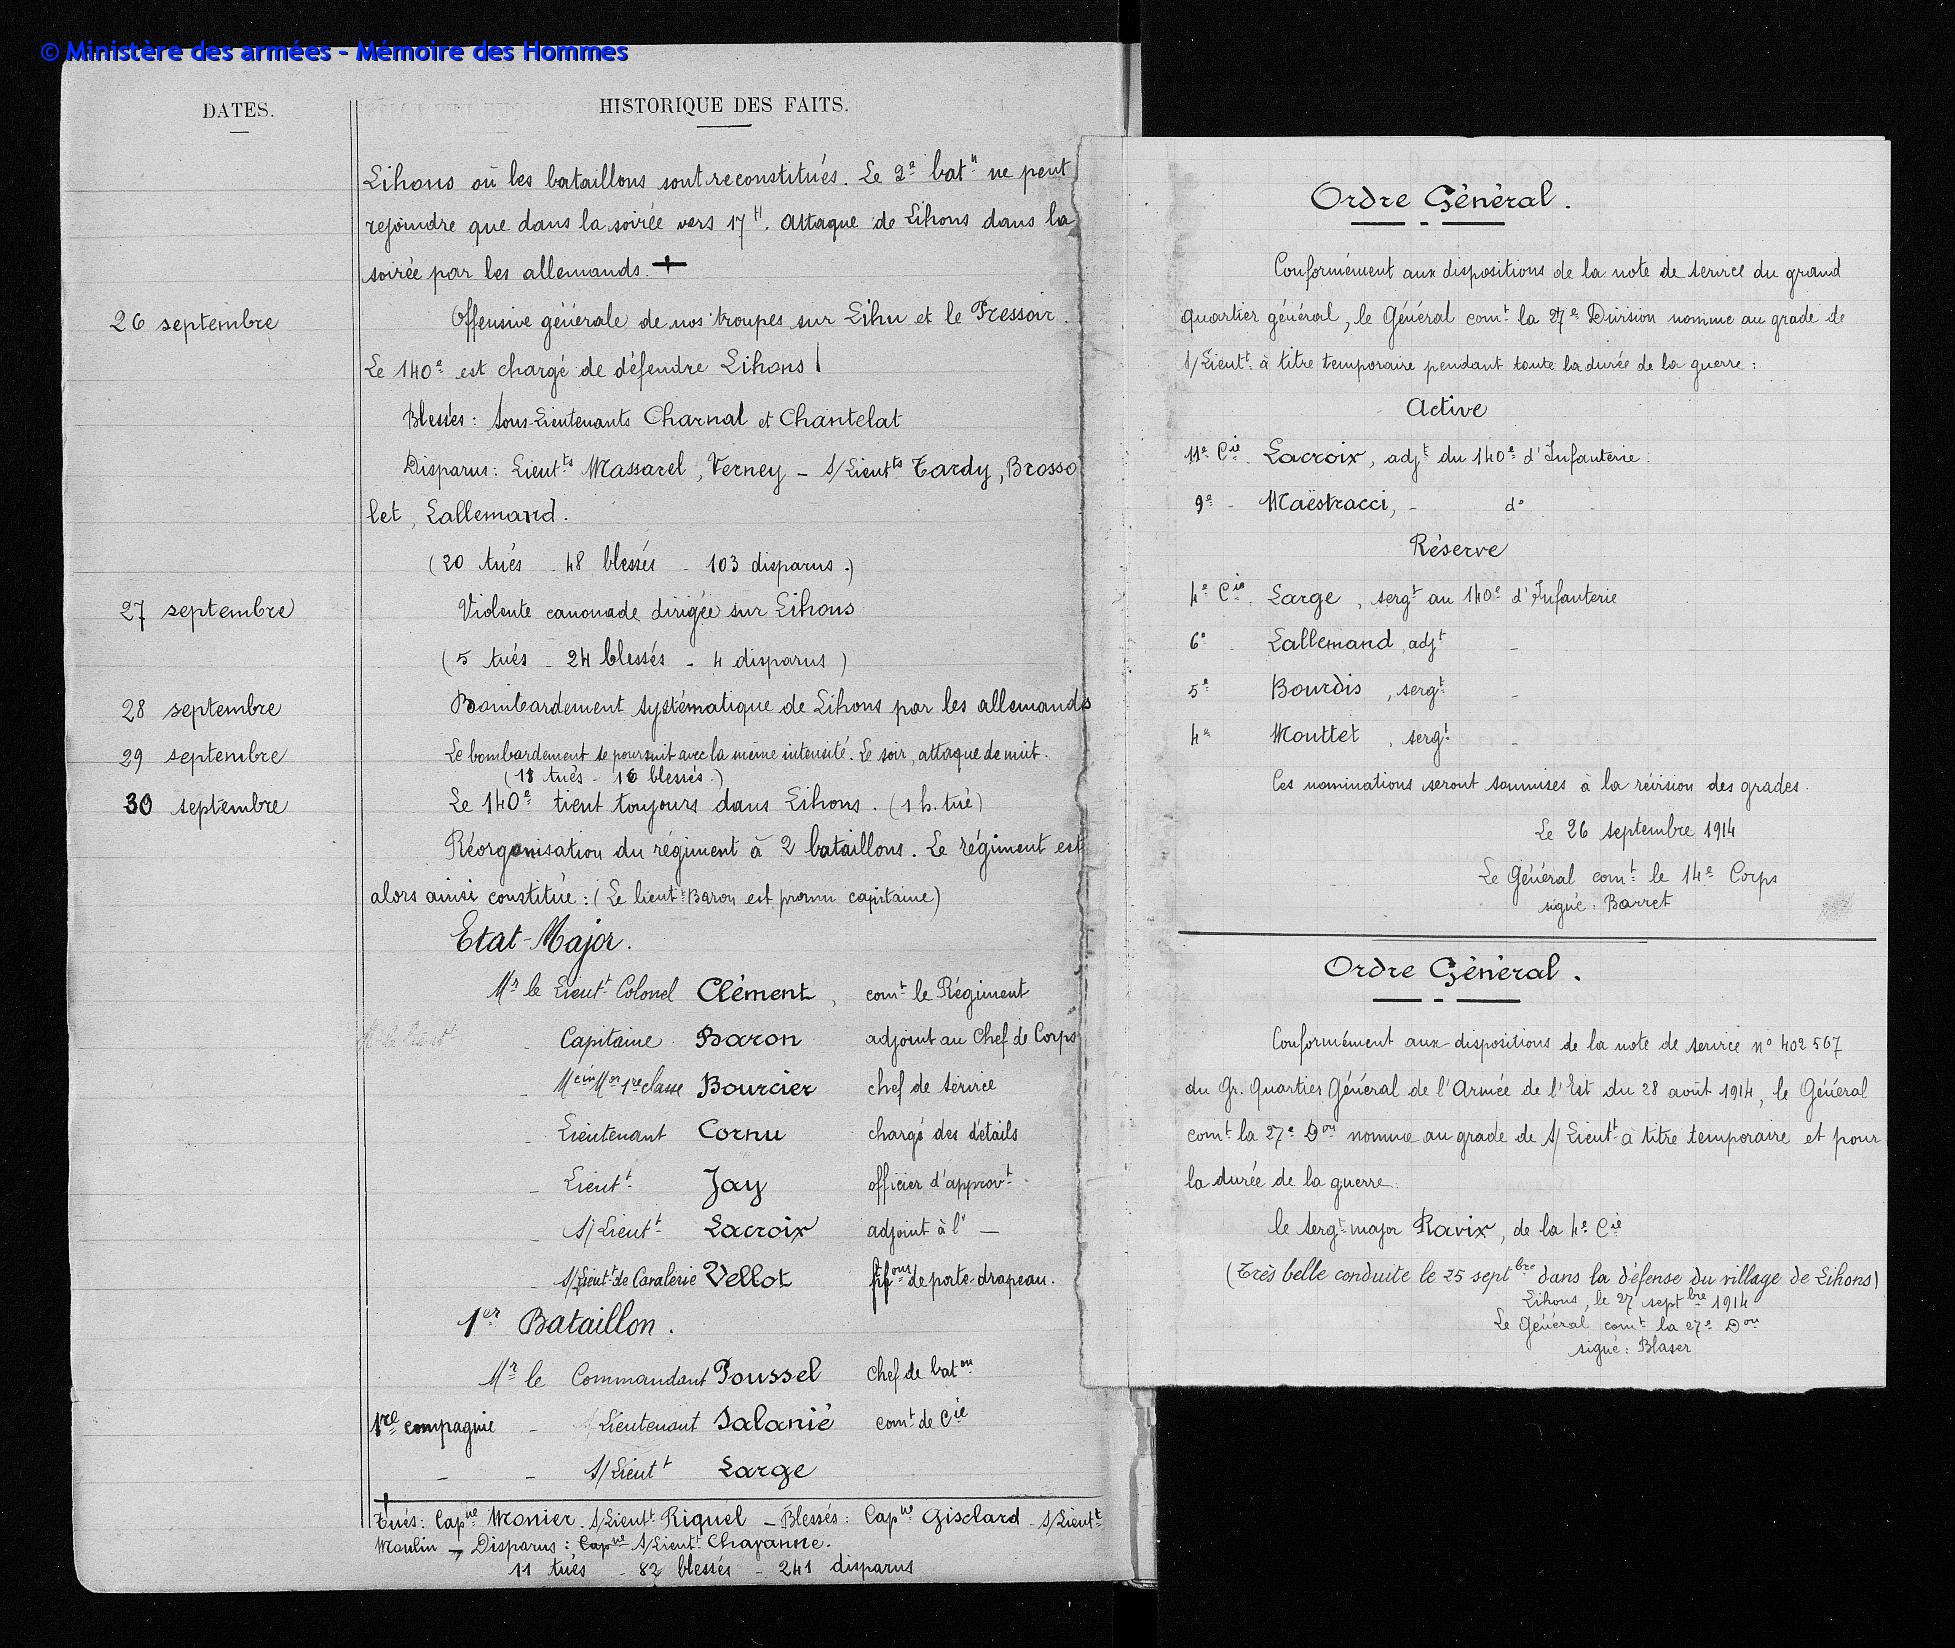 © Ministère des armées - Mémoire des Hommes
DATES.
HISTORIQUE DES FAITS.
Lihons où les bataillons sont reconstitués. Le 2e batn ne peut
rejoindre que dans la soirée vers 17H. Attaque de Lihons dans la
soirée par les allemands. +
26 septembre Offensive générale de nos troupes sur Lihu et le Pressoir.
Le 140e est chargé de défendre Lihons
Blessés : Sous-Lieutenants Charnal et Chantelat
Disparus : Lieutts Massarel, Verney - S/Lieutts Tardy, Brosso
let, Lallemand.
(20 tués - 48 blessés - 103 disparus.)
27 septembre Violente canonade dirigée sur Lihons
(5 tués - 24 blessés - 4 disparus)
28 septembre Bombardement systématique de Lihons par les allemands
29 septembre Le bombardement se poursuit avec la même intensité. Le soir, attaque de nuit.
(18 tués - 16 blessés.)
30 septembre Le 140e tient toujours dans Lihons. (1 h. tué)
Réorganisation du régiment à 2 bataillons. Le régiment est
alors ainsi constitué : (Le lieutt Baron est promu capitaine)
Etat-Major.
Mr le Lieutt Colonel Clément, comt le Régiment
- Capitaine Baron adjoint au Chef de Corps
- Mcin Mor 1re classe Bourcier chef de service
- Lieutenant Cornu chargé des détails
- Lieutt Jay officier d'approvt
- S/Lieutt Lacroix adjoint à l' -
- S/Lieutt de Cavalerie Vellot ffons de porte-drapeau.
1er Bataillon.
Mr le Commandant Poussel chef de baton
1re compagnie - Lieutenant Salanié comt de Cie
- - S/Lieutt Large
+
Tués : Capne Monier. S/Lieutt Riquel - Blessés : Capne Gisclard - S/Lieutt
Moulin -, Disparus : Capne S/Lieutt Chavanne.
11 tués - 82 blessés - 241 disparus
Ordre Général.
Conformément aux dispositions de la note de service du grand
quartier général, le Général comt la 27e Division nomme au grade de
S/Lieutt à titre temporaire pendant toute la durée de la guerre :
Active
11e Cie. Lacroix, adjt du 140e d'Infanterie.
9e - Maëstracci, - do
Réserve
4e Cie. Large, sergt au 140e d'Infanterie
6e - Lallemand, adjt -
5e Bourdis, sergt -
4e Mouttet, sergt -
Ces nominations seront soumises à la révision des grades.
Le 26 septembre 1914
Le Général comt le 14e Corps
signé : Barret
Ordre Général.
Conformément aux dispositions de la note de service no 402 567
du Gr. Quartier Général de l'Armée de l'Est du 28 août 1914, le Général
comt la 27e Don nomme au grade de S/Lieutt à titre temporaire et pour
la durée de la guerre.
le sergt major Ravix, de la 4e Cie
(Très belle conduite le 25 septbre dans la défense du village de Lihons)
Lihons, le 27 septbre 1914
Le Général comt la 27e Don
signé : Blaser